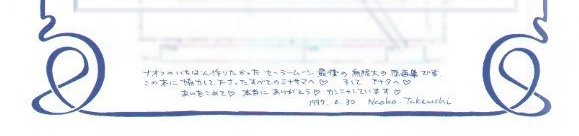 ナオコのいちばん作りたかった セーラームーン 最後の 無限大の 原画集です
この本に協力して下さったすべてのミナサマへ♡ そして アナタへ♡
あいをこめて♡ 本当に ありがとう♡ カンシャしています♡
1997. 6. 30 Naoko. Takeuchi